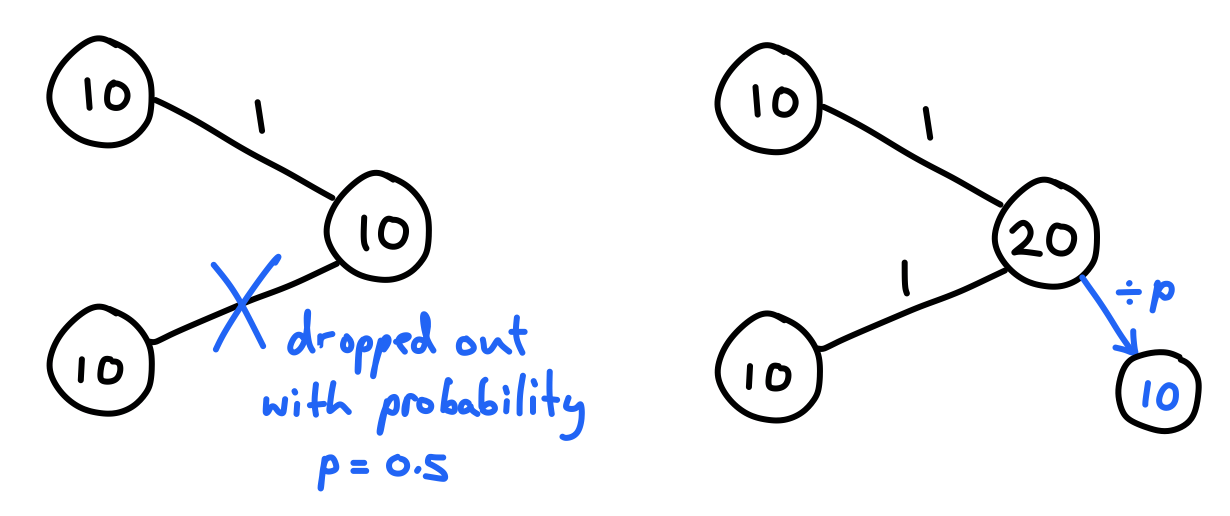 10
1
10
10
dropped out
with probability
p = 0.5
10
1
20
1
÷p
10
10